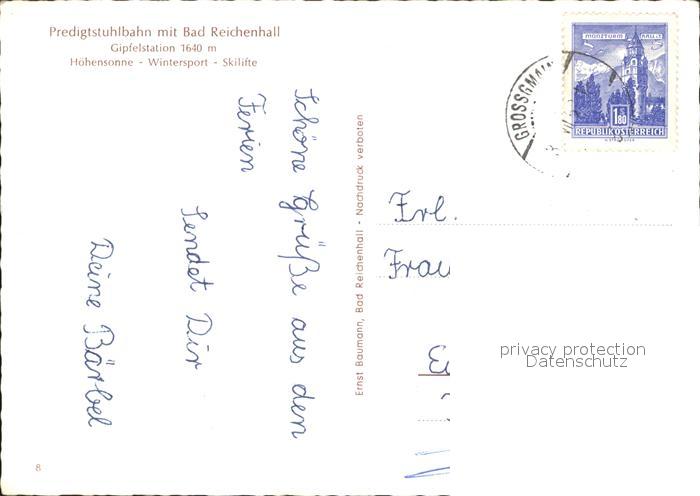 Predigtstuhlbahn mit Bad Reichenhall
Gipfelstation 1640 m
Höhensonne - Wintersport - Skilifte
Schöne Grüße aus den
Ferien
sendet Dir
Deine Bärbel
Ernst Baumann, Bad Reichenhall - Nachdruck verboten
Frl.
Frau
MÜNZTURM HALL i. T.
1.80
REPUBLIK ÖSTERREICH
GROSSGMAIN
privacy protection
Datenschutz
8